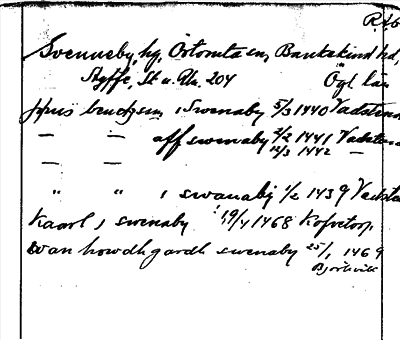 RAb
Svenneby, hg, Örtomta sn, Bankekind hd,
Ögl län
jppus bendzson, i Swenaby 5/3 1440 Vadstena
— — aff swenaby 2/2 1441 Vadstena
— — 12/3 1442 —
" " i swanaby 1/2 1439 Vadsta
Kaarl i swenaby 19/4 1468 Kofvetorp
swan howdhgardh swenaby 25/1 1469
Bjorkvik